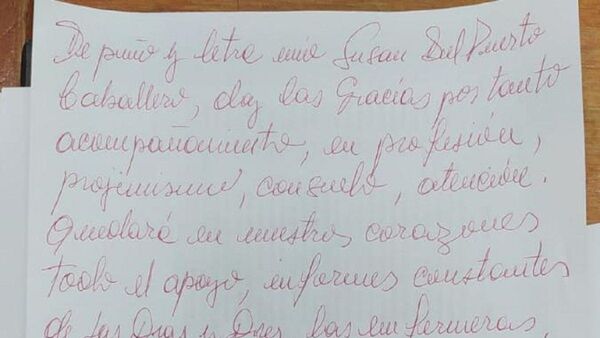 De puño y letra mio Susan Del Puerto
Caballero, doy las Gracias por tanto
acompañamiento, en profesión,
projimismo, consuelo, atención.
Quedará en nuestros corazones
todo el apoyo, informes constantes
de las Dras y Dres, las enfermeras,